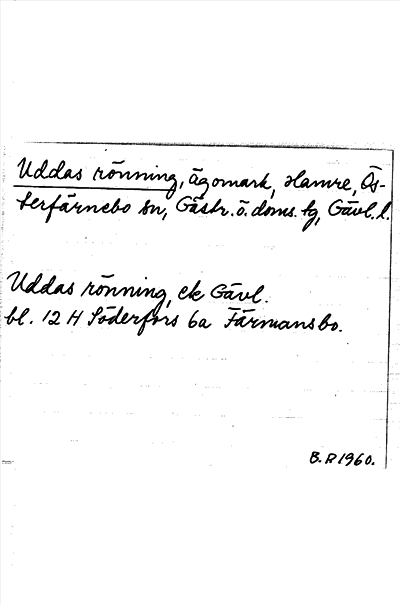 Uddas rönning, ägomark, Hamre, Ös-
terfärnebo sn, Gästr. ö. doms. tg, Gävl. l.
Uddas rönning, ek Gävl.
bl. 12 H Söderfors 6a Färmansbo.
B. R 1960.